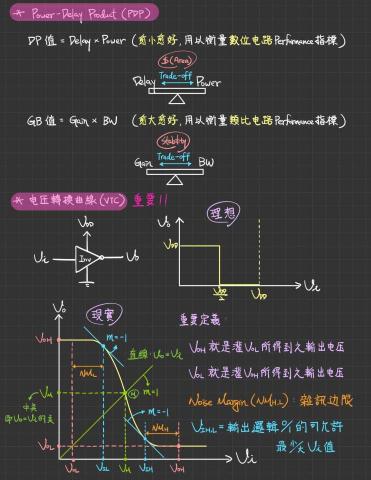 * Power-Delay Product (PDP)
DP 值 = Delay × Power (愈小愈好,用以衡量數位電路Performance指標)
$(Area)
Delay Trade-off Power
GB 值 = Gain × BW (愈大愈好,用以衡量類比電路Performance指標)
Stability
Gain Trade-off BW
* 电压轉換曲線(VTC) 重要!!
VDD
Vi Inv Vo
理想
Vo
VDD
VDD/2 VDD Vi
現實
Vo
m=-1
直線:Vo=Vi
VOH
NML
VM
中点
即Vo=Vi的点
M
m=1
m=-1
NMH
VOL
VOL VIL VM VIH VOH Vi
重要定義:
VOH 就是灌VOL所得到之輸出电压
VOL 就是灌VOH所得到之輸出电压
Noise Margin (NMH,L): 雜訊边限